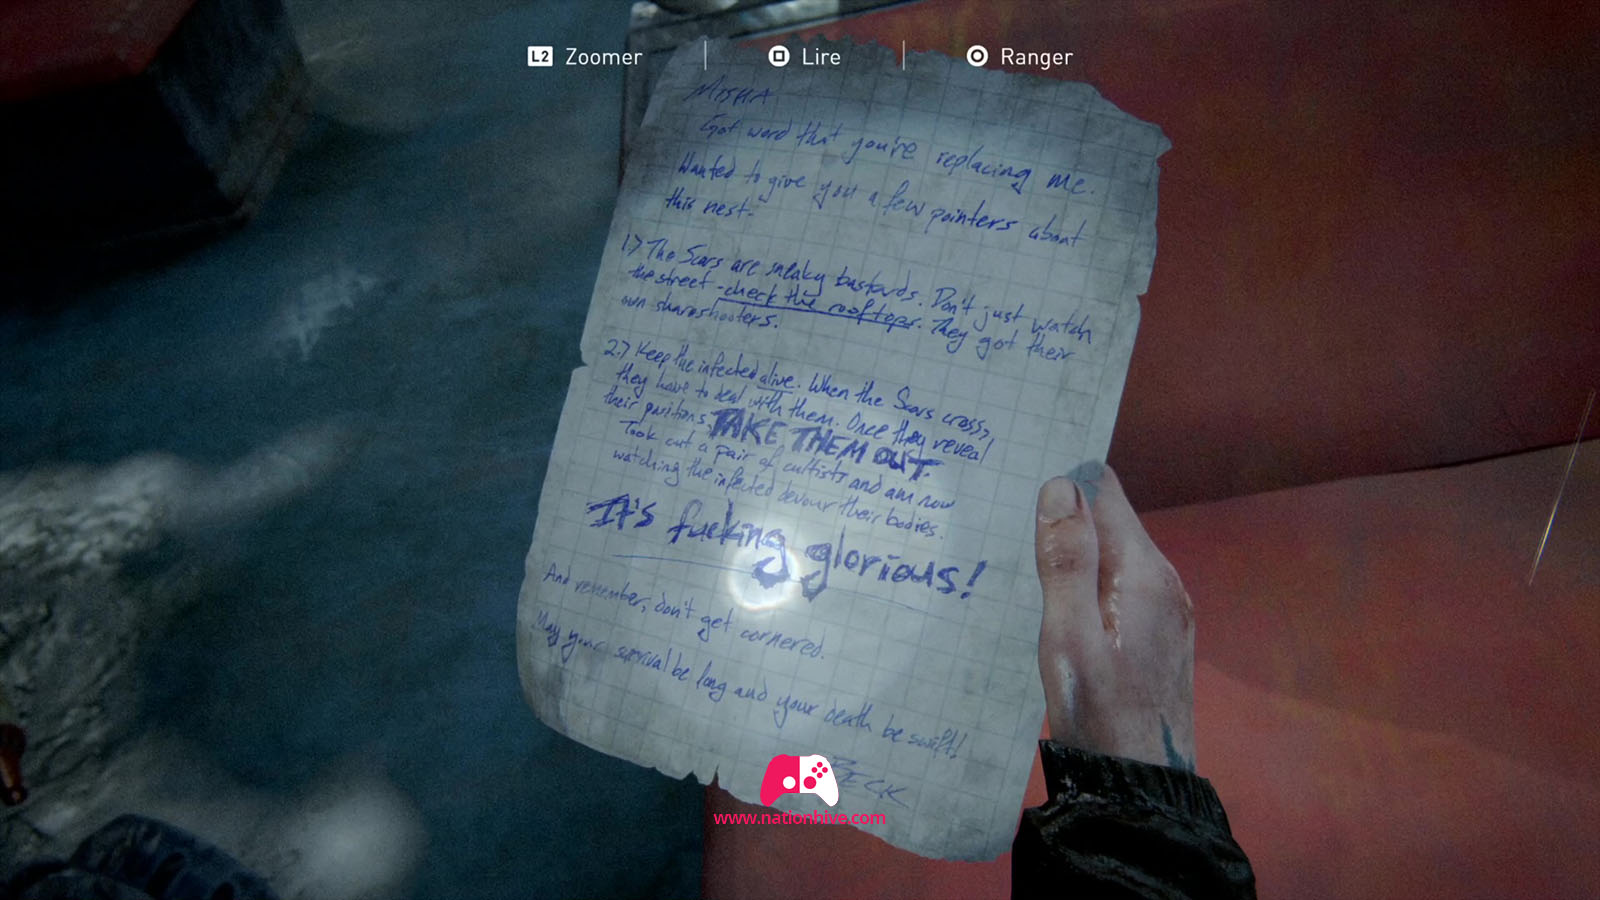 L2 Zoomer
Lire
Ranger
MISHA
Got word that you're replacing me.
Wanted to give you a few pointers about
this nest.
1.) The Scars are sneaky bastards. Don't just watch
the street - check the rooftops. They got their
own sharpshooters.
2.) Keep the infected alive. When the Scars cross,
they have to deal with them. Once they reveal
their positions, TAKE THEM OUT.
Took out a pair of cultists and am now
watching the infected devour their bodies.
It's fucking glorious!
And remember, don't get cornered.
May your survival be long and your death be swift!
www.nationhive.com